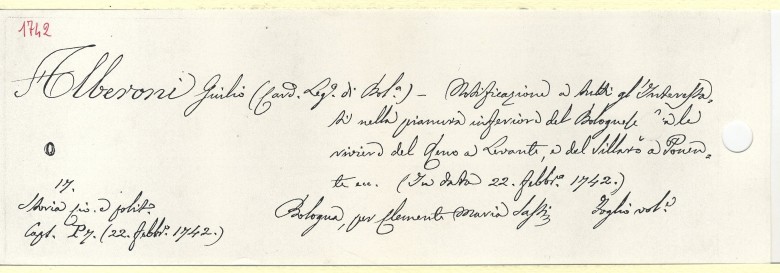 1742
Alberoni Giulio (Card. Leg.º di Bol.ª) – Notificazione a tutti gl'Interessa-
ti nella pianura inferiore del Bolognese a le
riviere del Reno a Levante, e del Sillaro a Ponen-
te ecc. (In data 22. febbr.º 1742.)
17.
Storia civ. e polit.ª
Cart. P7. (22. febbr.º 1742.)
Bologna, per Clemente Maria Sassi, Foglio vol.e